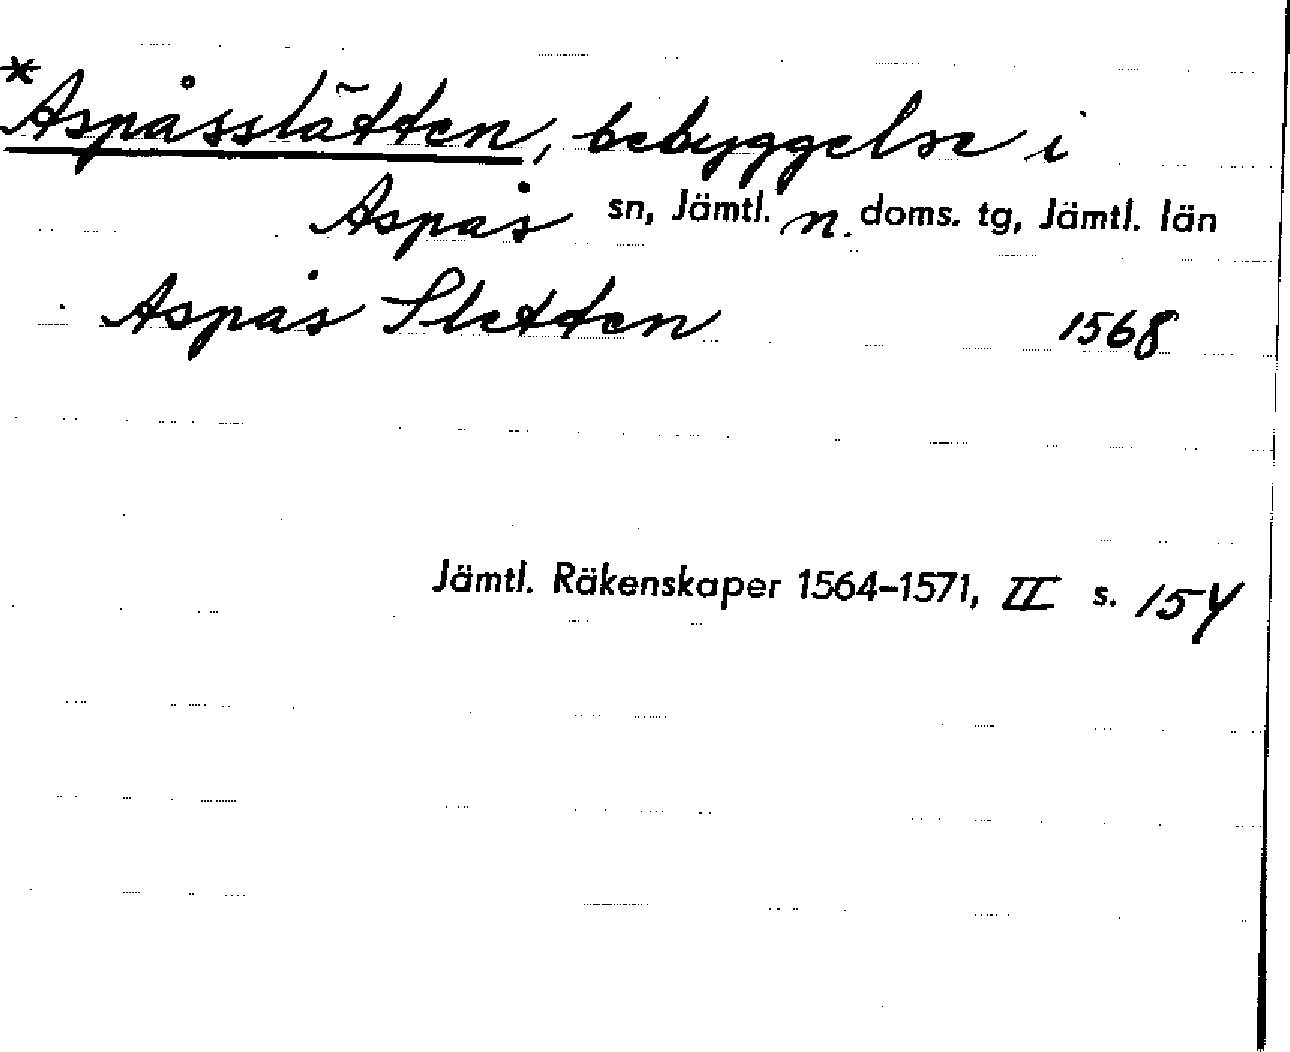 *Aspåsslätten, bebyggelse i
Aspås sn, Jämtl. n. doms. tg, Jämtl. län
Aspås Sletten 1568
Jämtl. Räkenskaper 1564-1571, II s. 154